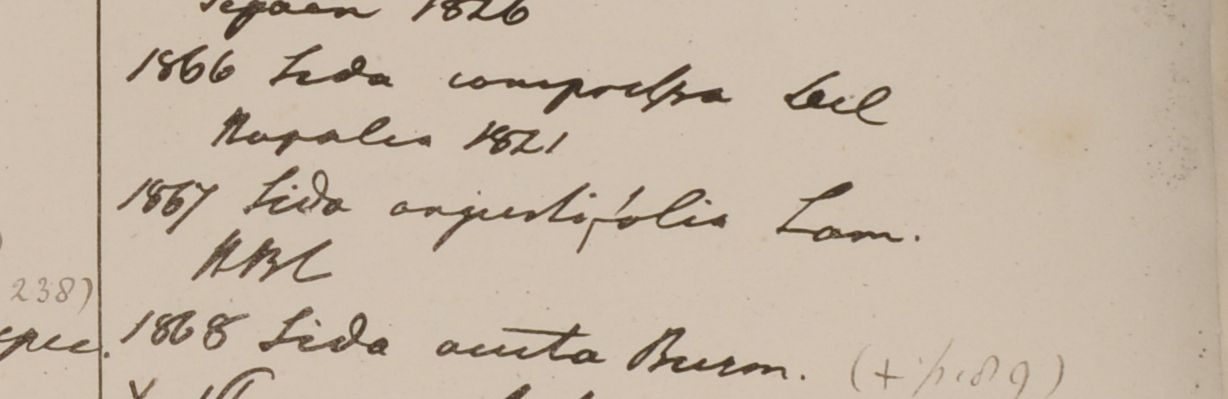 1826
1866 Sida compressa Wall
Napalia 1821
1867 Sida angustifolia Lam.
HBC
238)
spec. 1868 Sida acuta Burm.